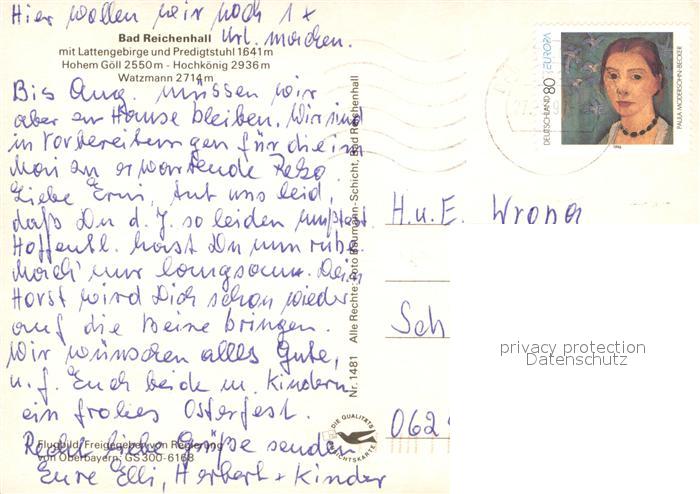 Hier wollen wir noch 1x
Url. machen.
Bad Reichenhall
mit Lattengebirge und Predigtstuhl 1641 m
Hohem Göll 2550 m - Hochkönig 2936 m
Watzmann 2714 m
Bis Aug. müssen wir
aber zu Hause bleiben. Wir sind
in Vorbereitungen für die im
Mai zu erwartende Reko.
Liebe Erni, tut uns leid,
daß Du d. J. so leiden mußtest.
Hoffentl. hast Du nun Ruhe.
Mach' nur langsam. Dein
Horst wird Dich schon wieder
auf die Beine bringen.
Wir wünschen alles Gute,
u. f. Euch beide u. Kindern
ein frohes Osterfest.
Recht liebe Grüße senden
Eure Elli, Herbert + Kinder
Flugbild, Freigegeben von Regierung
von Oberbayern: GS 300-6168
Nr. 1481 Alle Rechte: Foto Baumann-Schicht, Bad Reichenhall
DIE QUALITÄTS
ANSICHTSKARTE
DEUTSCHLAND 80 EUROPA
PAULA MODERSOHN-BECKER
1996
H. u. E. Wrona
Sch
062
privacy protection
Datenschutz